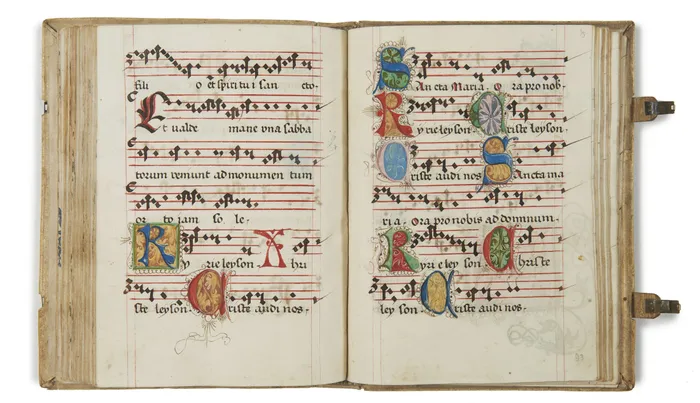 fili o et spiritui san cto·
Et valde mane vna sabba
torum veniunt ad monumen tum
or to jam so le·
Ky rieleyson· Xhri
ste leyson· Criste audi nos·
Sancta Maria· Ora pro nob·
Kyrieleyson· Criste leyson·
Criste audi nos Sancta ma
ria· Ora pro nobis ad dominum·
Kyri e ley son· Christe
ley son· Criste audi nos·